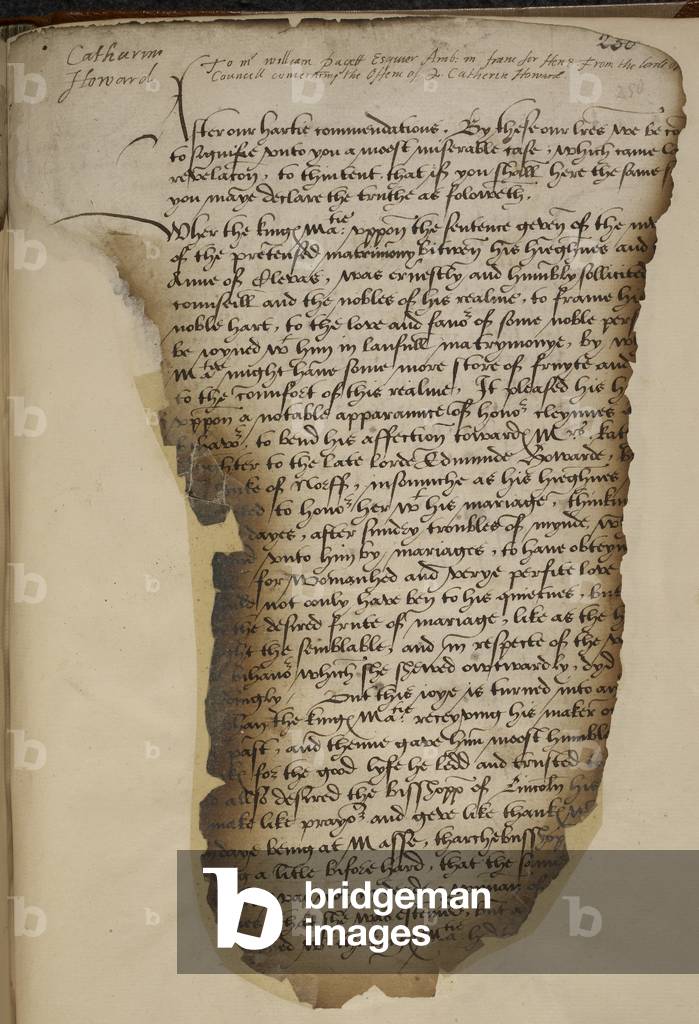 Catharin
Howard
250
To mr william Pagett Esquier Amb: in franc for Hen 8 From the lords of
Councell concerning the Offenc of Q Catherin Howard
250
After our hartie commendations. By these our lres we be co
to signifie vnto you a moost miserable case, which came l
revelacon, to thintent, that if you shall here the same
you maye declare the truthe as foloweth.
Wher the kinges Matie vppon the sentence geven of the
of the pretensed matrimony bitwen his hieghnes and
Anne of Cleves, was ernestly and humbly sollicited
counsell and the nobles of his realme, to frame hi
noble hart, to the love and favor of some noble pers
be ioyned wt him in laufull matrymonye, by w
Matie might have some more store of fruyte and
to the comfort of this realme, It pleased his h
vppon a notable apparaunce of honor, cleynnes
bihavor, to bend his affection towardes Mrs. kat
ghter to the late lorde Edmunde Howarde,
uke of Norff, insomuche as his hieghnes
ted to honor her wt his mariage, thinkin
dayes, after sundry troubles of mynde, w
vnto him by mariages, to have obteyn
for Womanhed and verye perfite love
ld not only have ben to his quietnes, but
the desired frute of mariage, like as the h
the semblable, and in respecte of the v
bihavor which she shewed owtwardly, dyd
dingly. But this ioye is turned into
han the kinges Matie receyving his maker o
past, and thenne gave him moost humble
for the good lyfe he ledd and trusted
also desired the bisshopp of Lincoln his
make like prayor and geve like thankes
daye being at Masse, tharchebusshop
g a litle bifore hard, that the same
she was estemed, but
bridgeman
images